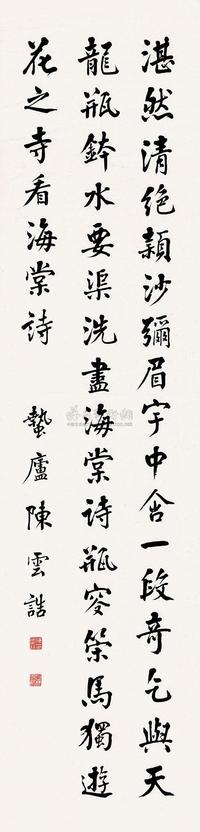 湛然清絕穎沙彌眉宇中含一段奇乞與天
龍瓶鉢水要渠洗盡海棠詩瓶容策馬獨遊
花之寺看海棠詩
蟄廬陳雲誥